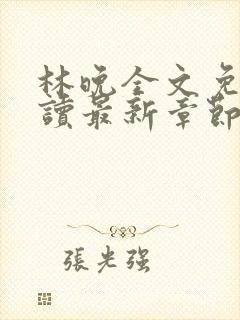 林晚全文免
讀最新章節
張光强